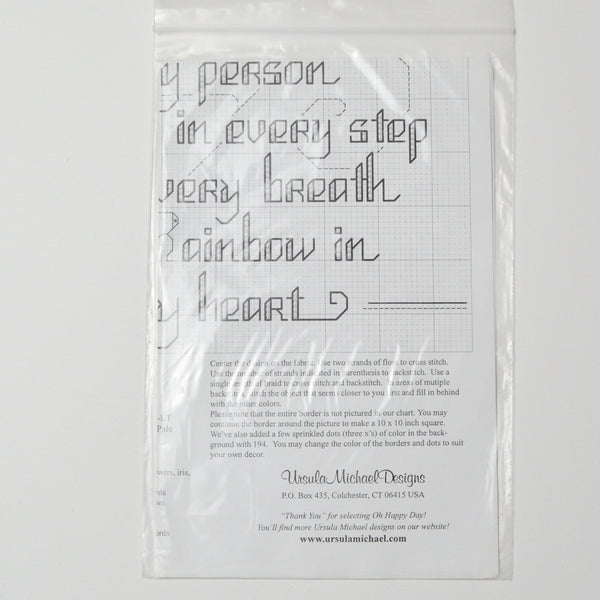 y person
in every step
very breath
Rainbow in
y heart
Center the design on the fabric. Use two strands of floss to cross stitch.
Use the number of strands indicated in parenthesis to backstitch. Use a
single length of braid to cross stitch and backstitch. In areas of mutiple
backstitch, stitch the object that seems closer to you first and fill in behind
with the other colors.
Please note that the entire border is not pictured in our chart. You may
continue the border around the picture to make a 10 x 10 inch square.
We've also added a few sprinkled dots (three x's) of color in the back-
ground with 194. You may change the color of the borders and dots to suit
your own decor.
-LT
Pale
wers, iris,
ords
Ursula Michael Designs
P.O. Box 435, Colchester, CT 06415 USA
"Thank You" for selecting Oh Happy Day!
You'll find more Ursula Michael designs on our website!
www.ursulamichael.com